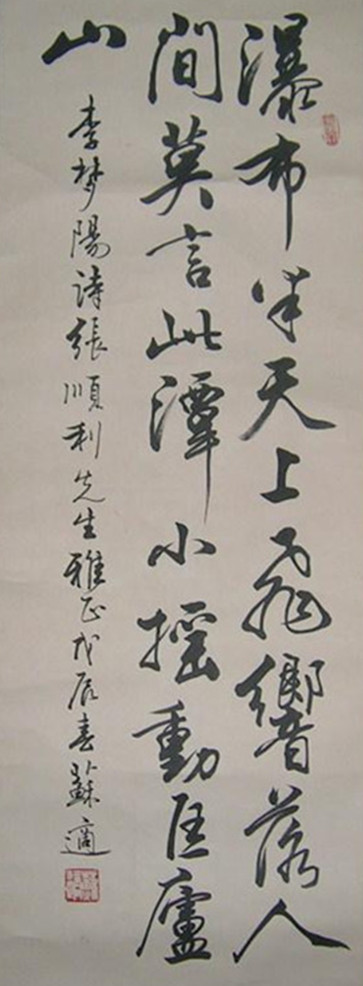 瀑布半天上飛響落人
間莫言此潭小摇動匡廬
山
李梦陽詩張順利先生雅正戊辰春蘇適